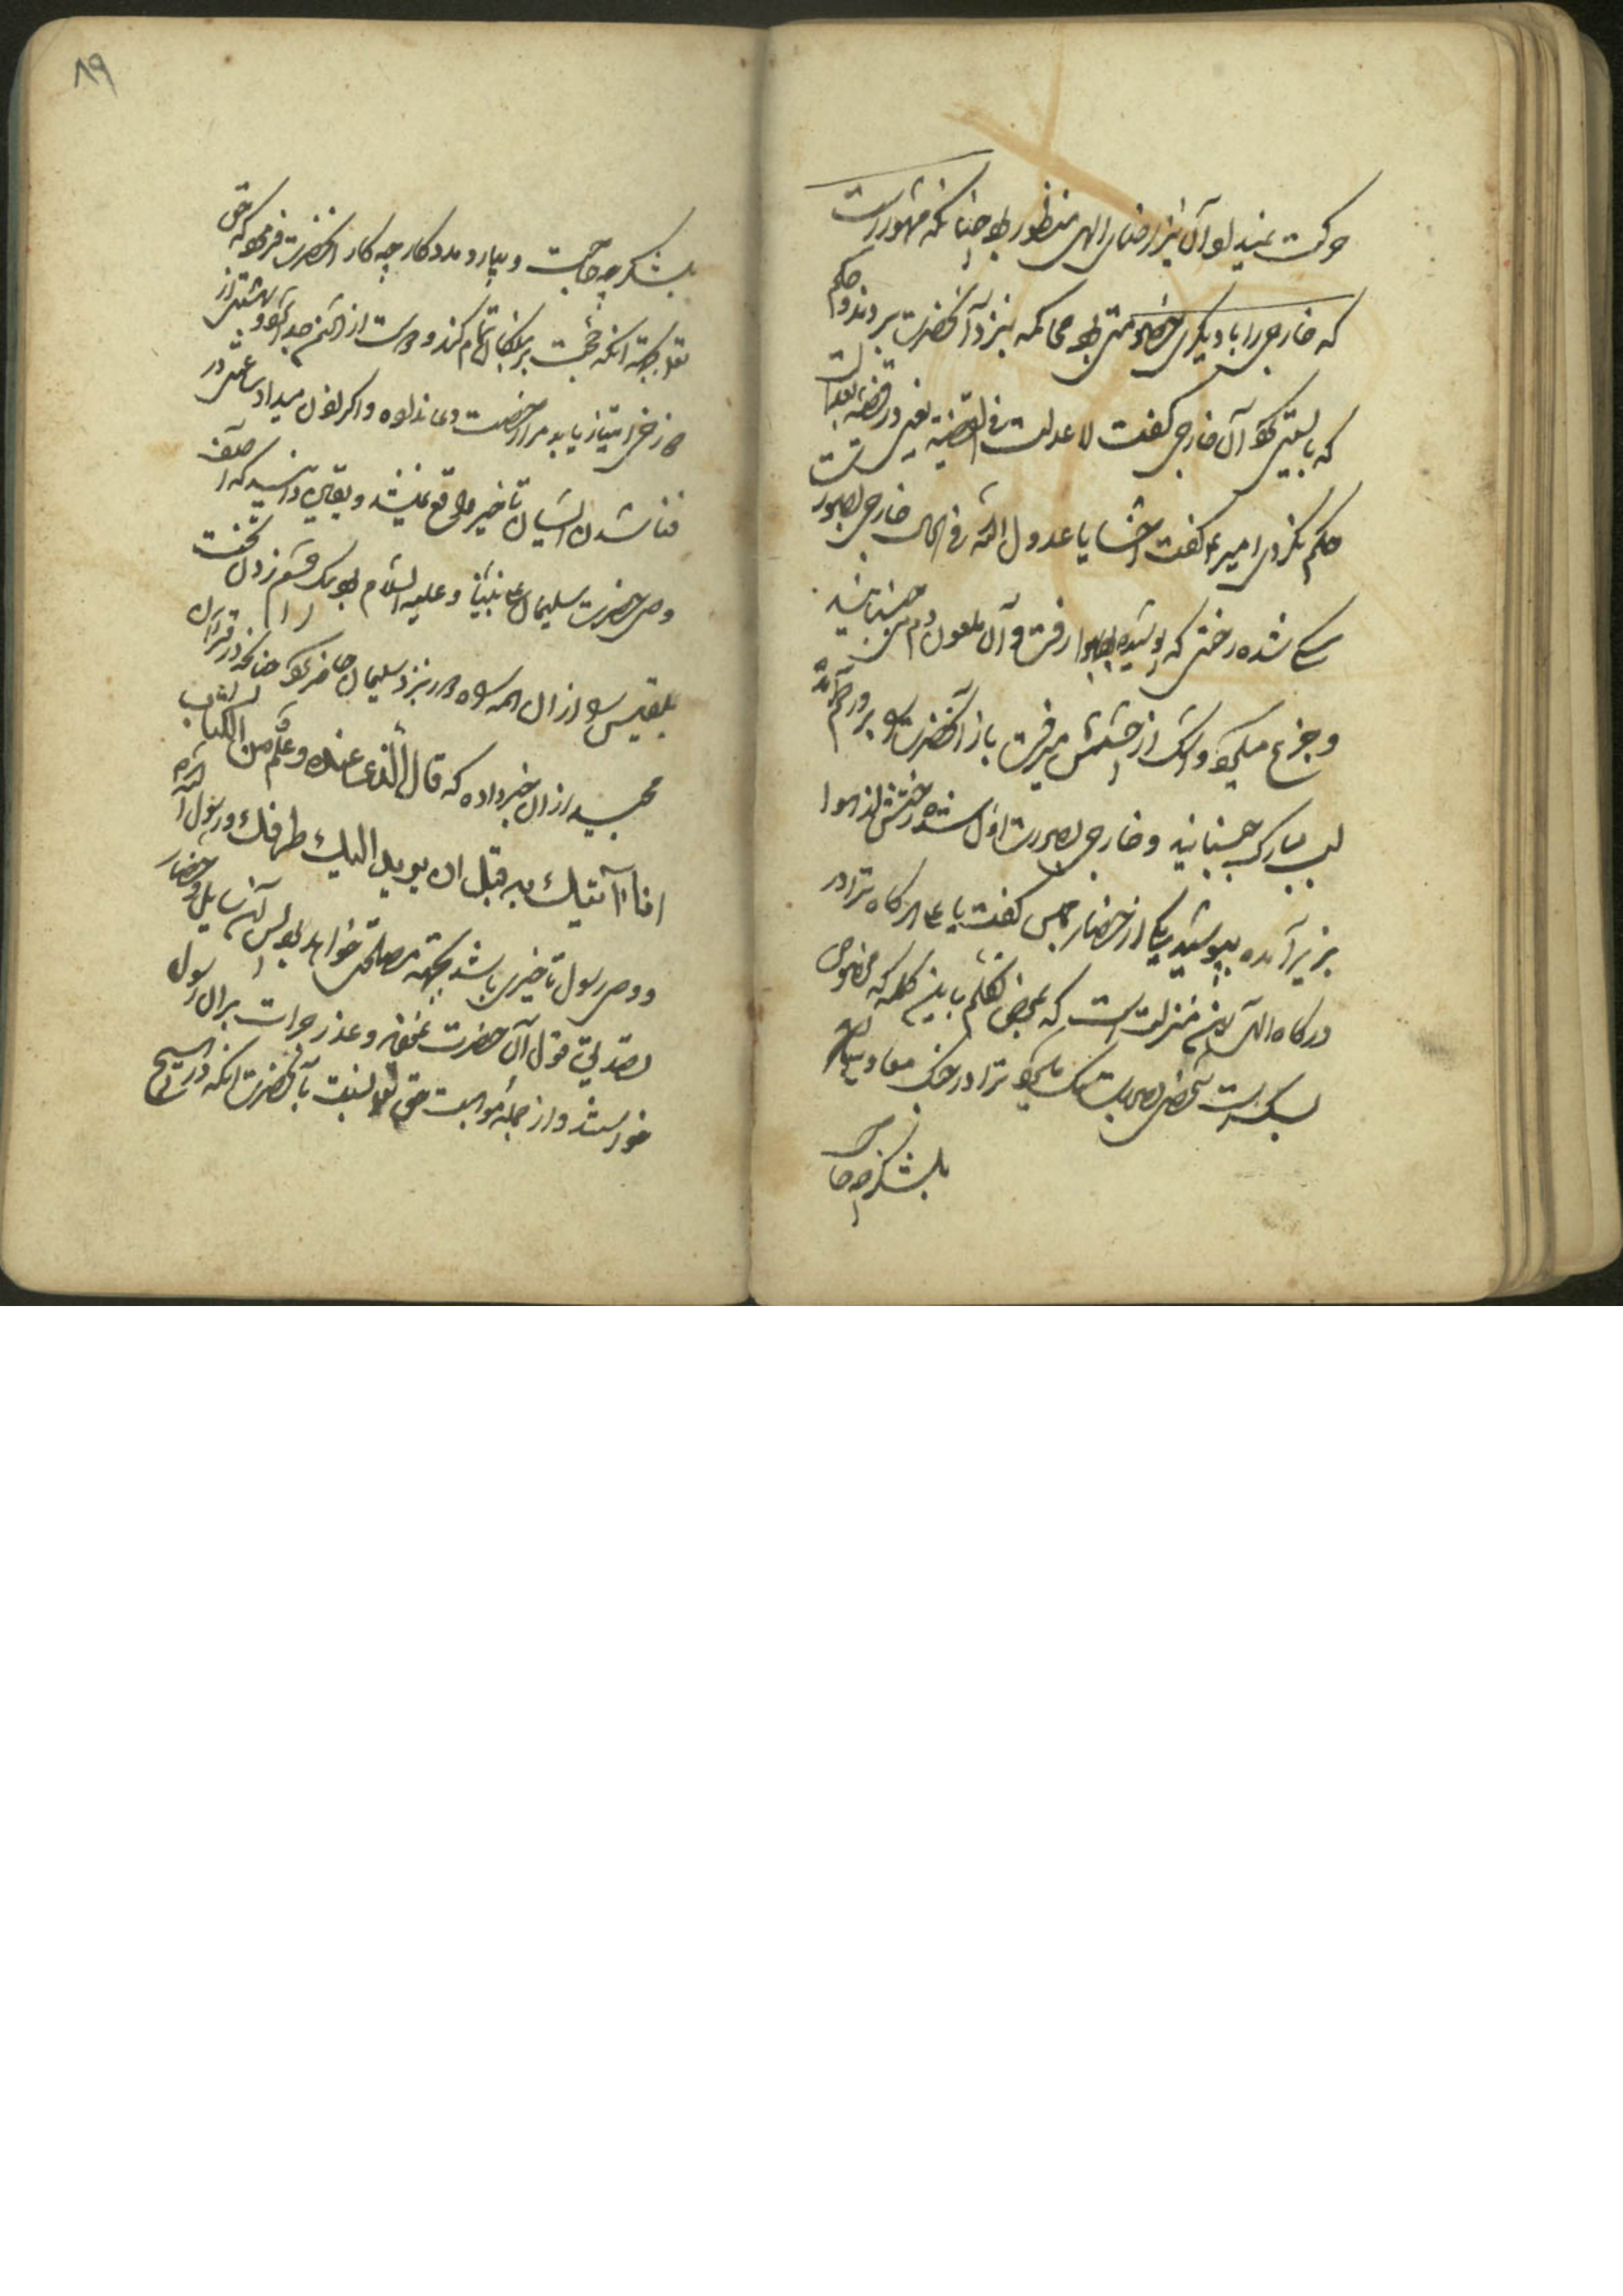 حرکت نمیدا و آن نیز رضای الهی منظور بود چنانکه مشهور است
که خارجی را با دیگری خصومتی بود محاکمه بنزد آنحضرت بردند و حکم
که بایستی کرد آن خارجی گفت لا عدلت فی القضیه یعنی در قضیه بعدالت
حکم نکردی امیر ع گفت اخسأ یا عدو الله فی الحال خارجی بصورت
سگی شده رختی که پوشیده بود بهوا رفت و آن ملعون دم می جنبانید
و جزع میکرد و اشک از چشمش میرفت باز آنحضرت را برو رحم آمد
لب مبارک جنبانید و خارجی بصورت اول شده رختش از هوا
بزیر آمده بپوشید یکی از حضار مجلس گفت یا علی هرگاه ترا در
درگاه الهی این منزلت است که بمحض تکلم باین کلمه که مخصوص
سگ است شخصی بصورت سگ میگردد ترا در جنگ معاویه
بلشکر چه حا
۸۹
بلشکر چه حاجت و بیار و مددکار چه کار آنحضرت فرمود که حق
تعالی آنکه حجت بر بندگان تمام کند و دوست از دشمن جدا و بهشتی از
دوزخی امتیاز یابد مرا رخصت دعا نداده و اگر اذن میداد ساعتی در
فنا شدن ایشان تأخیر واقع نمیشد و بیقین دانسته که آصف
وصی حضرت سلیمان علی نبینا و علیه السلام بود بیک چشم زدن تخت
بلقیس را از آن همه راه نزد سلیمان حاضر کرد چنانکه در قرآن
مجید از آن خبر داده که قال الذی عنده علم من الکتاب
انا آتیک به قبل ان یرتد الیک طرفک و رسول
و وصی رسول تأخیری باشد بجهة مصلحتی خواهد بود پس آن سایل و حضار
تصدیق قول آن حضرت نموده و عذر جرأت بر آن رسول
خواستند و از جمله مواهب حق تعالی نسبت بآنحضرت آنکه در